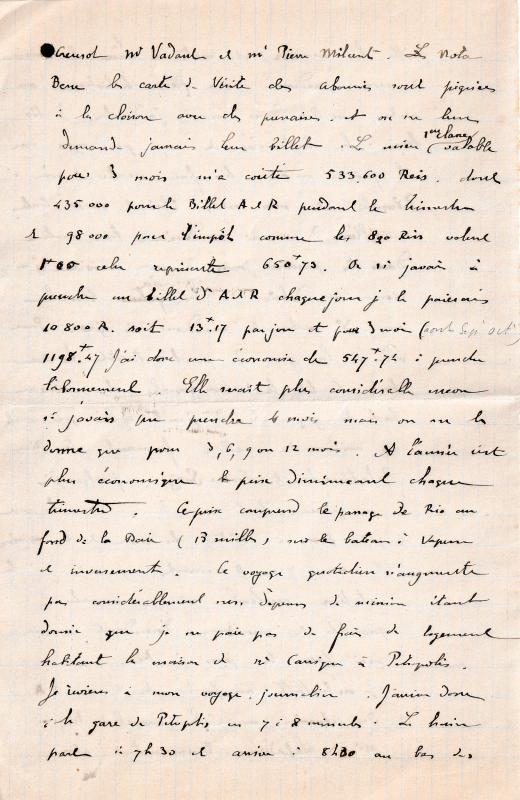 Creusot Mr Vadant et Mr Pierre Milient. Le Nota
Bene les cartes de Vérite des abonnés sont piquées
à la cloison avec des punaises. et on ne leur
demande jamais leur billet. Le mien 1ère classe valable
pour 3 mois m'a couté 533.600 Reis. dont
435000 pour le Billet A et R pendant le trimestre
et 98000 pour l'impôt comme les 820 Reis valent
1f00 cela représente 650f73. Or si j'avais à
prendre un billet d'A et R chaque jour je le paierais
10800 R. soit 13f.17 par jour et pour 3 mois (
1198f.47 J'ai donc une économie de 547f.74 à prendre
l'abonnement. Elle serait plus considérable encore
si j'avais pu prendre 4 mois mais on ne le
donne que pour 3, 6, 9 ou 12 mois. A l'année c'est
plus économique le prix diminuant chaque
trimestre. Ce prix comprend le passage de Rio au
fond de la Baie (13 milles) sur le bateau à Vapeur
et inversement. Ce voyage quotidien n'augmente
pas considérablement mes dépenses de mission étant
donné que je ne paie pas de frais de logement
habitant la maison de Mr Carrique à Pétropolis.
Je reviens à mon voyage journalier. J'arrive donc
à la gare de Pétropolis en 7 à 8 minutes. Le train
part à 7h30 et arrive à 8h30 au bas des